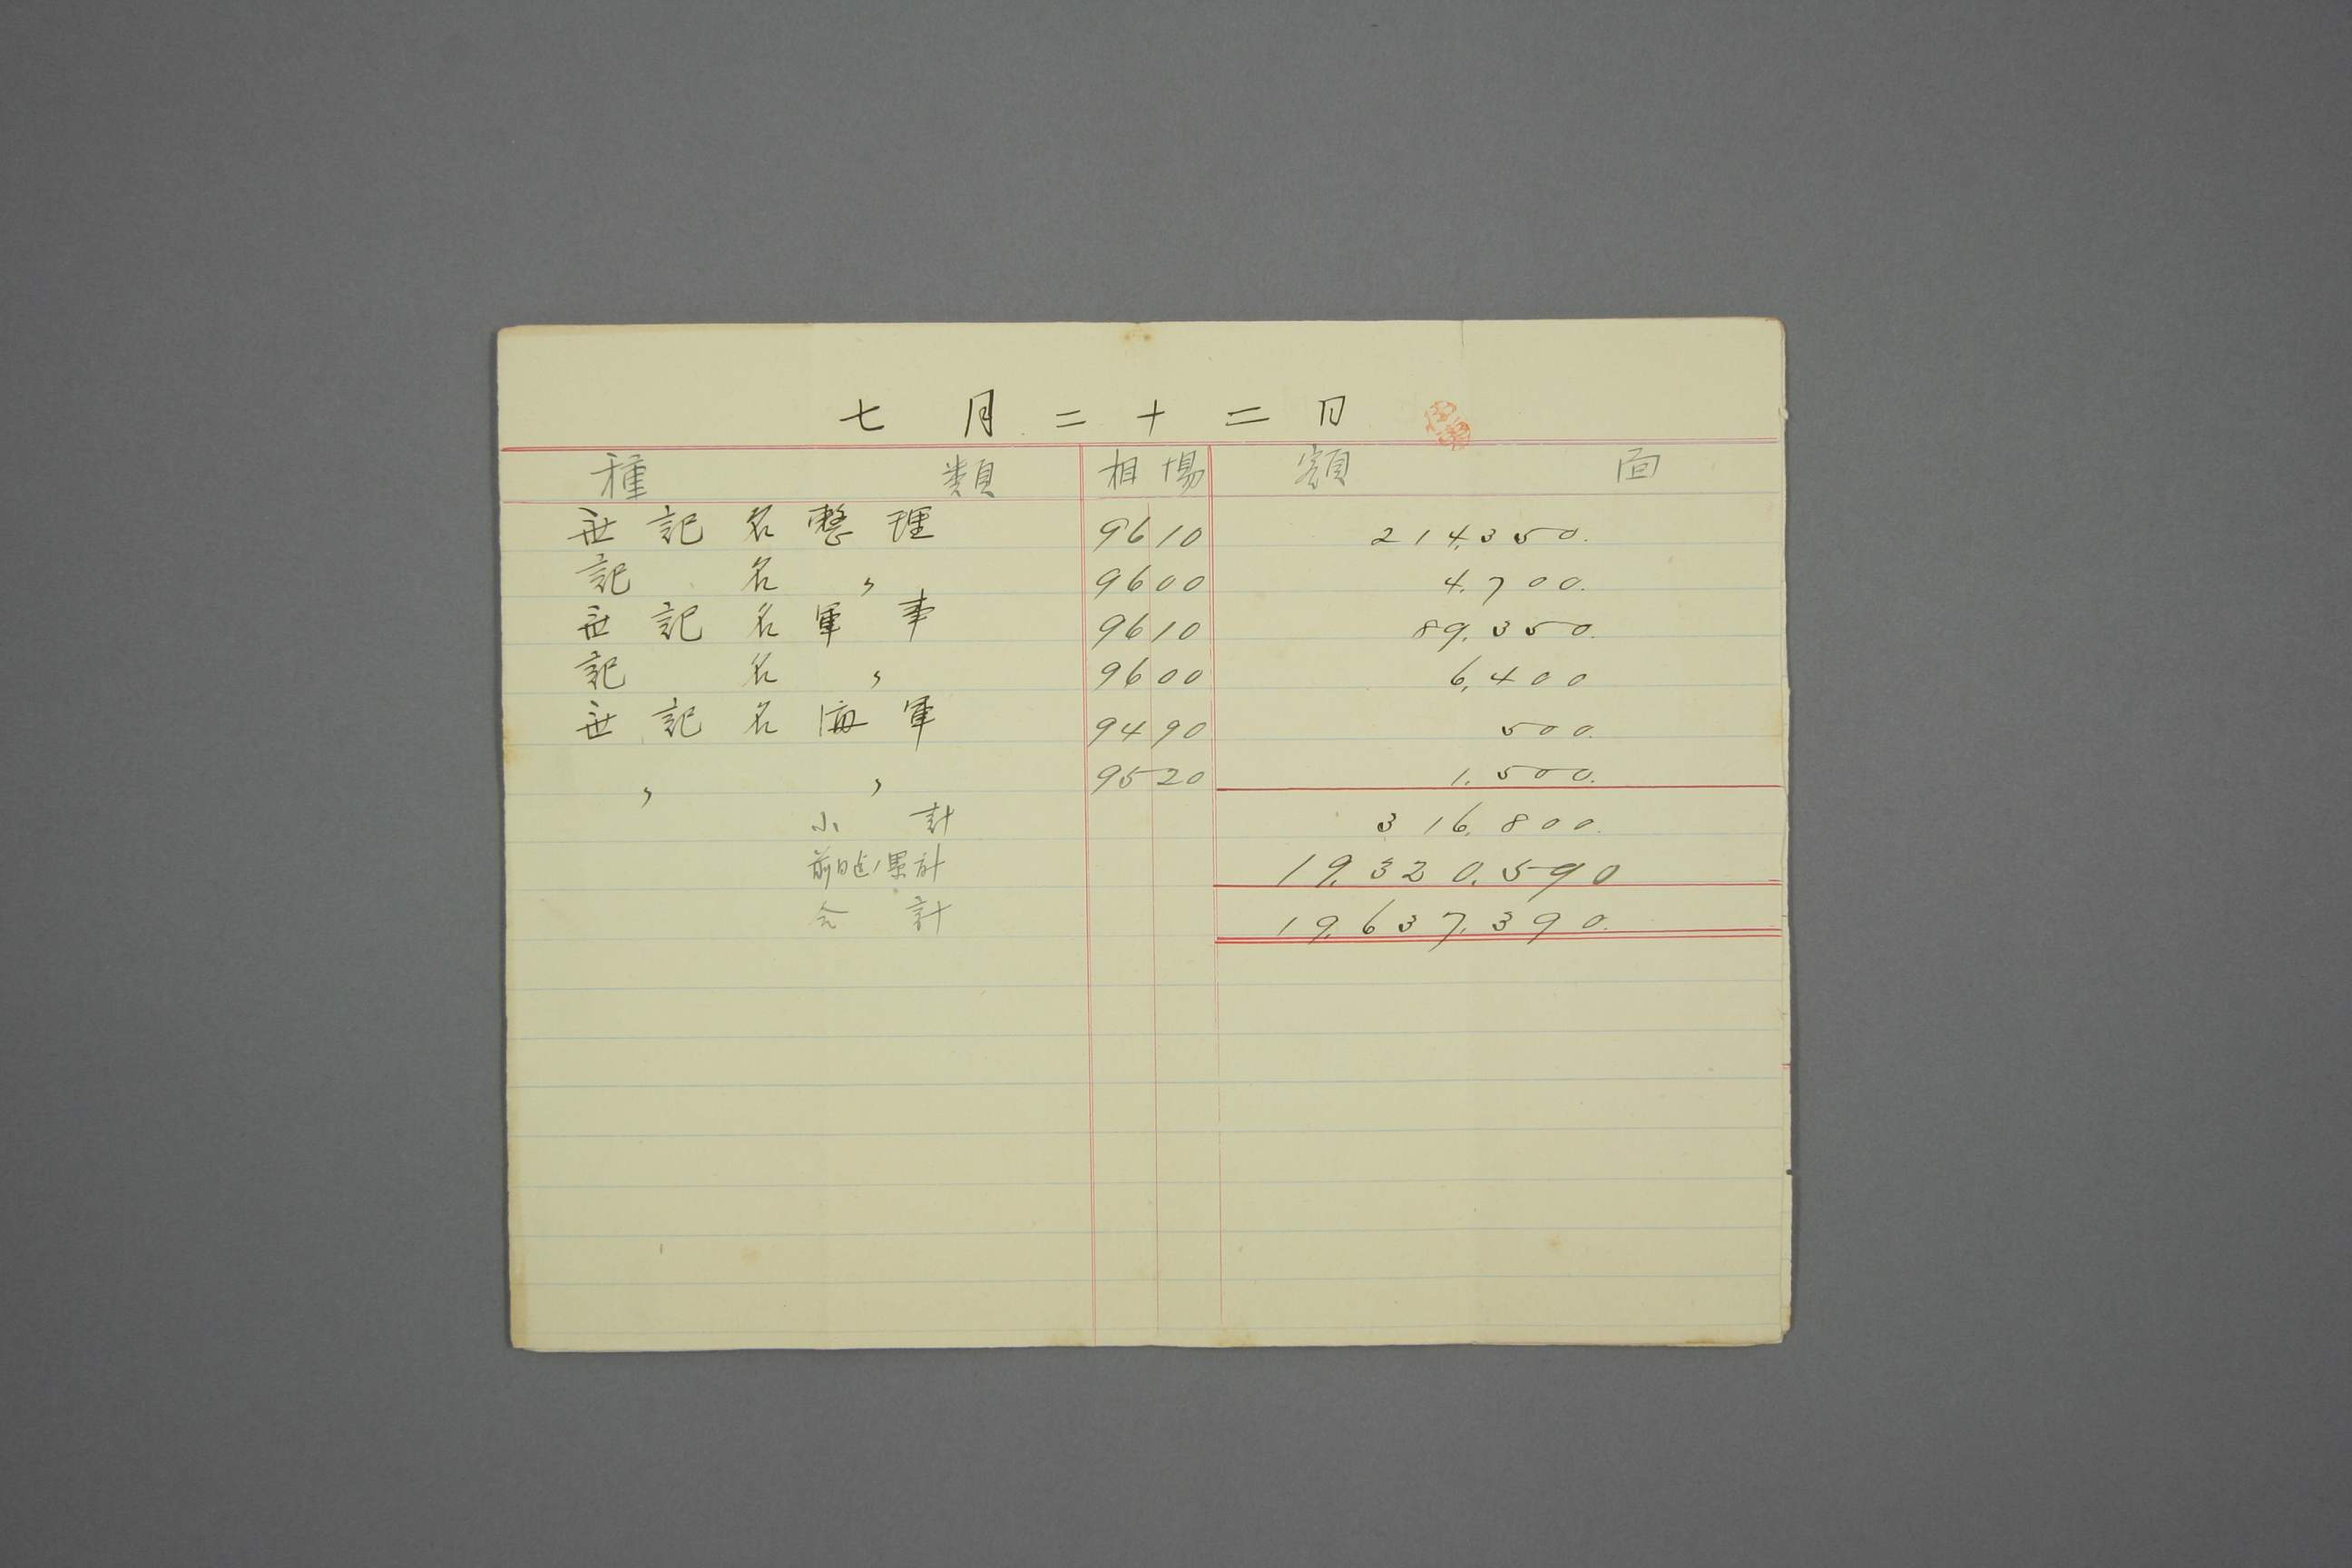 七月二十二日
種類 相場 額面
無記名整理 9610 214,350.
記名〃 9600 4,700.
無記名軍事 9610 89,350.
記名〃 9600 6,400
無記名海軍 9490 500.
〃 〃 9520 1,500.
小計 316,800.
前日迄ノ累計 19,320,590
合計 19,637,390.